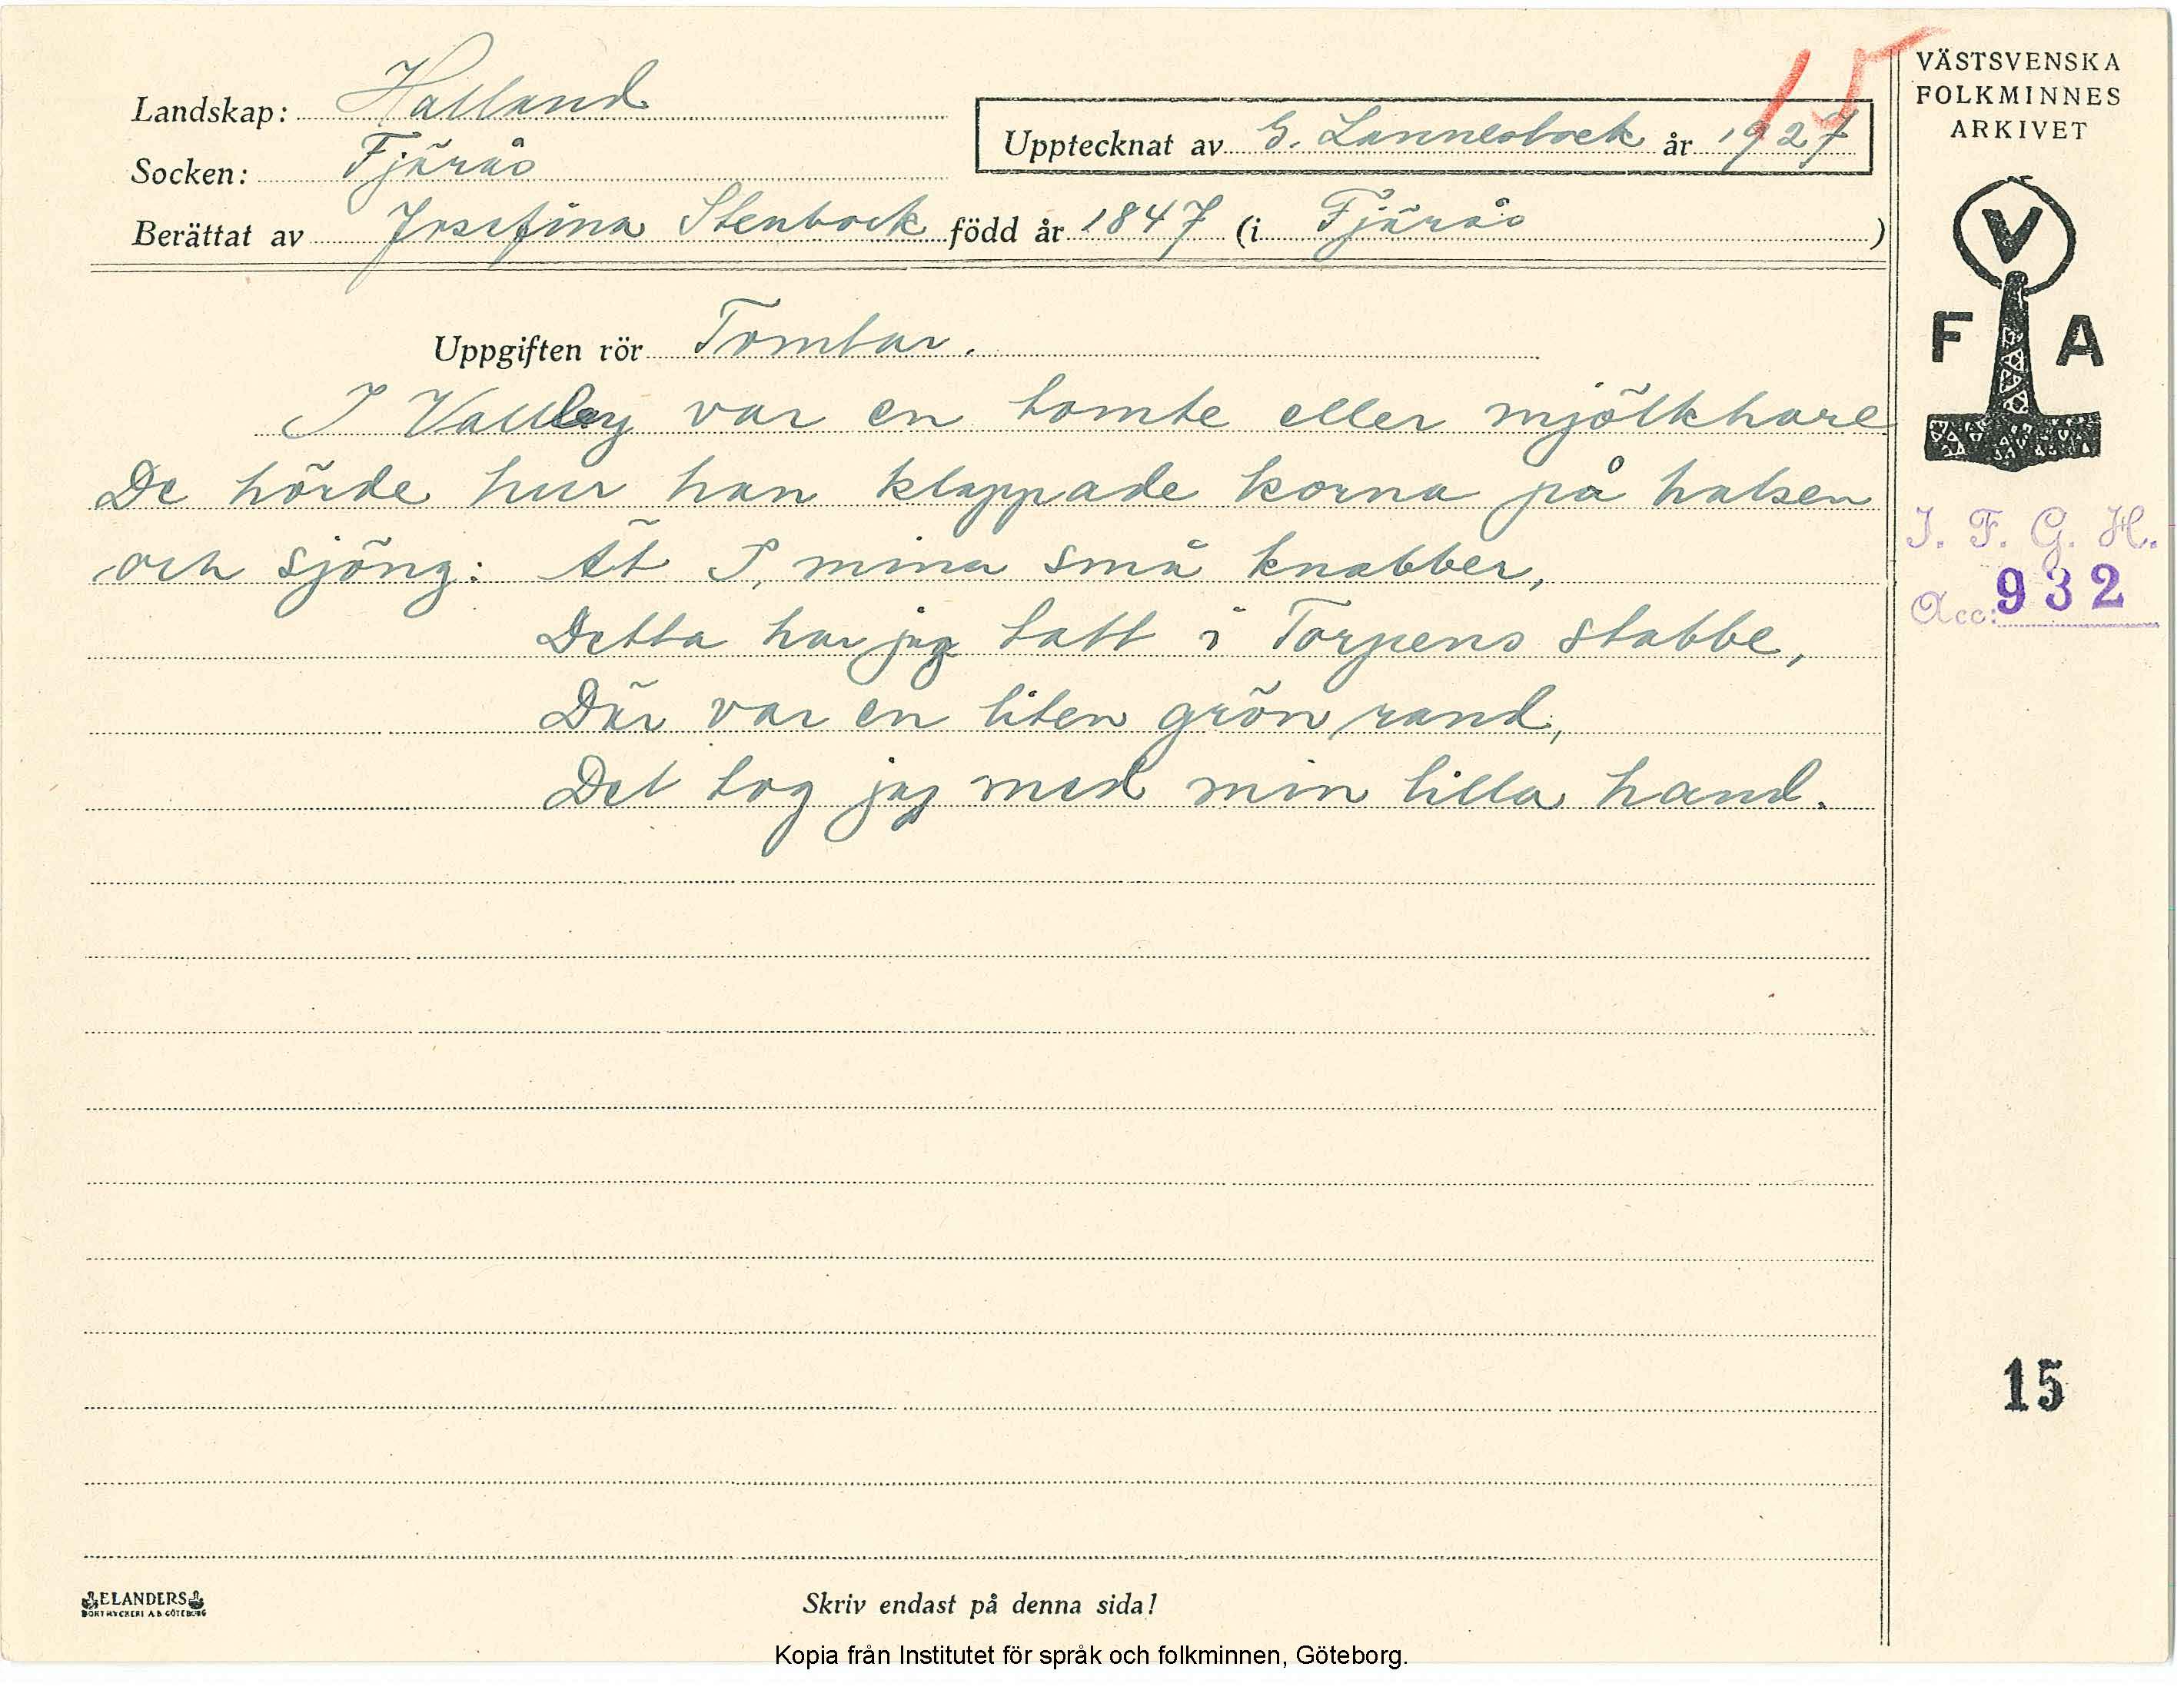 15
VÄSTSVENSKA
FOLKMINNES
ARKIVET
Landskap: Halland
Socken: Fjärås
Upptecknat av G. Lannesbock år 1927
Berättat av Josefina Stenbock född år 1847 (i Fjärås)
V
F A
Uppgiften rör Tomtar.
I Vallby var en tomte eller mjölkhare
De hörde hur han klappade korna på halsen
och sjöng: Ät I, mina små knabber,
Detta har jag tatt i Torpens stabbe,
Där var en liten grön rand,
Det tog jag med min lilla hand.
I. F. G. H.
Acc: 932
15
ELANDERS
BOKTRYCKERI A.B. GÖTEBORG
Skriv endast på denna sida!
Kopia från Institutet för språk och folkminnen, Göteborg.